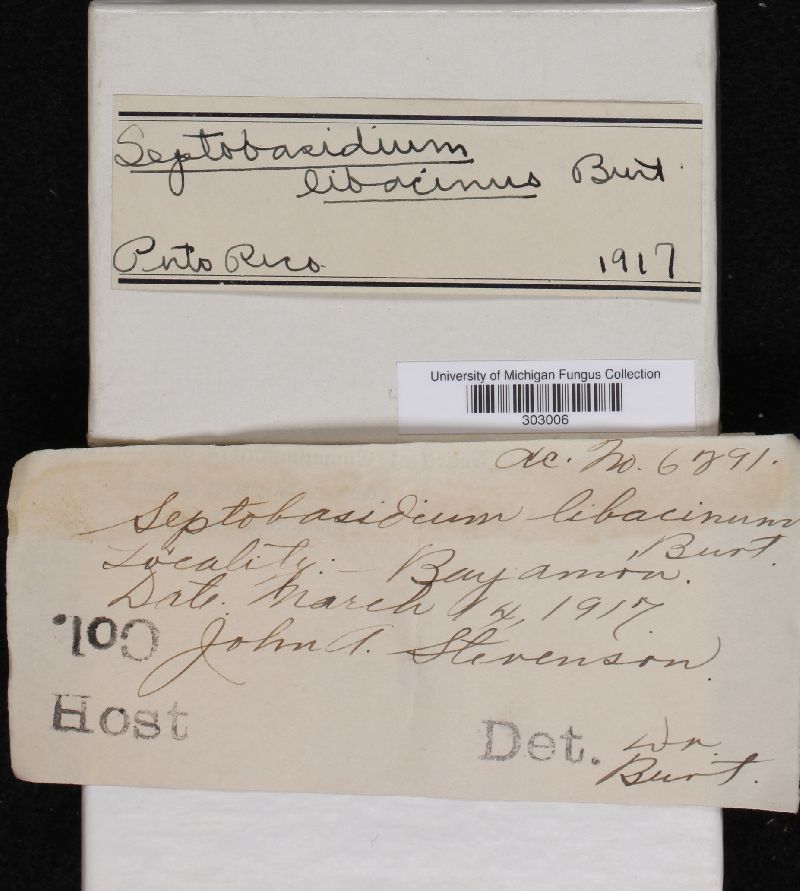 Septobasidium
libacinus Burt
Porto Rico 1917
University of Michigan Fungus Collection
303006
ac. No. 6291.
Septobasidium libacinum
Burt.
Locality:- Bayamón.
Date. March 14, 1917
Col. John A. Stevenson.
Host
Det. Dr.
Burt.